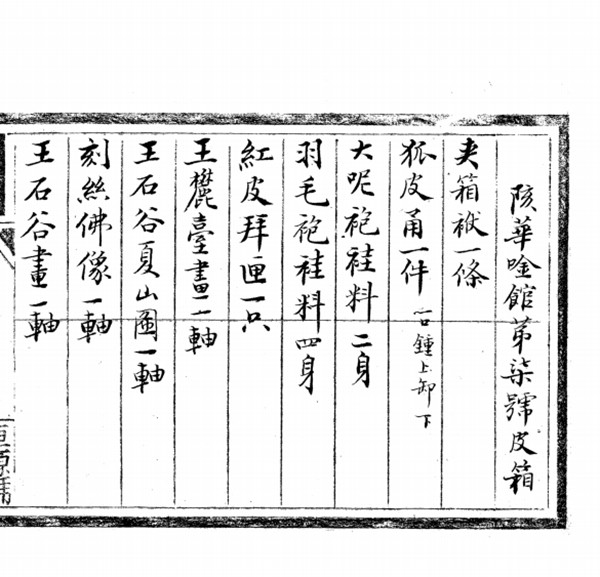 陔華唫館第柒號皮箱
夹箱袱一條
狐皮甬一件 一口鐘上卸下
大呢袍褂料二身
羽毛袍褂料四身
紅皮拜匣一只
王麓臺畫一軸
王石谷夏山圖一軸
刻絲佛像一軸
王石谷畫一軸